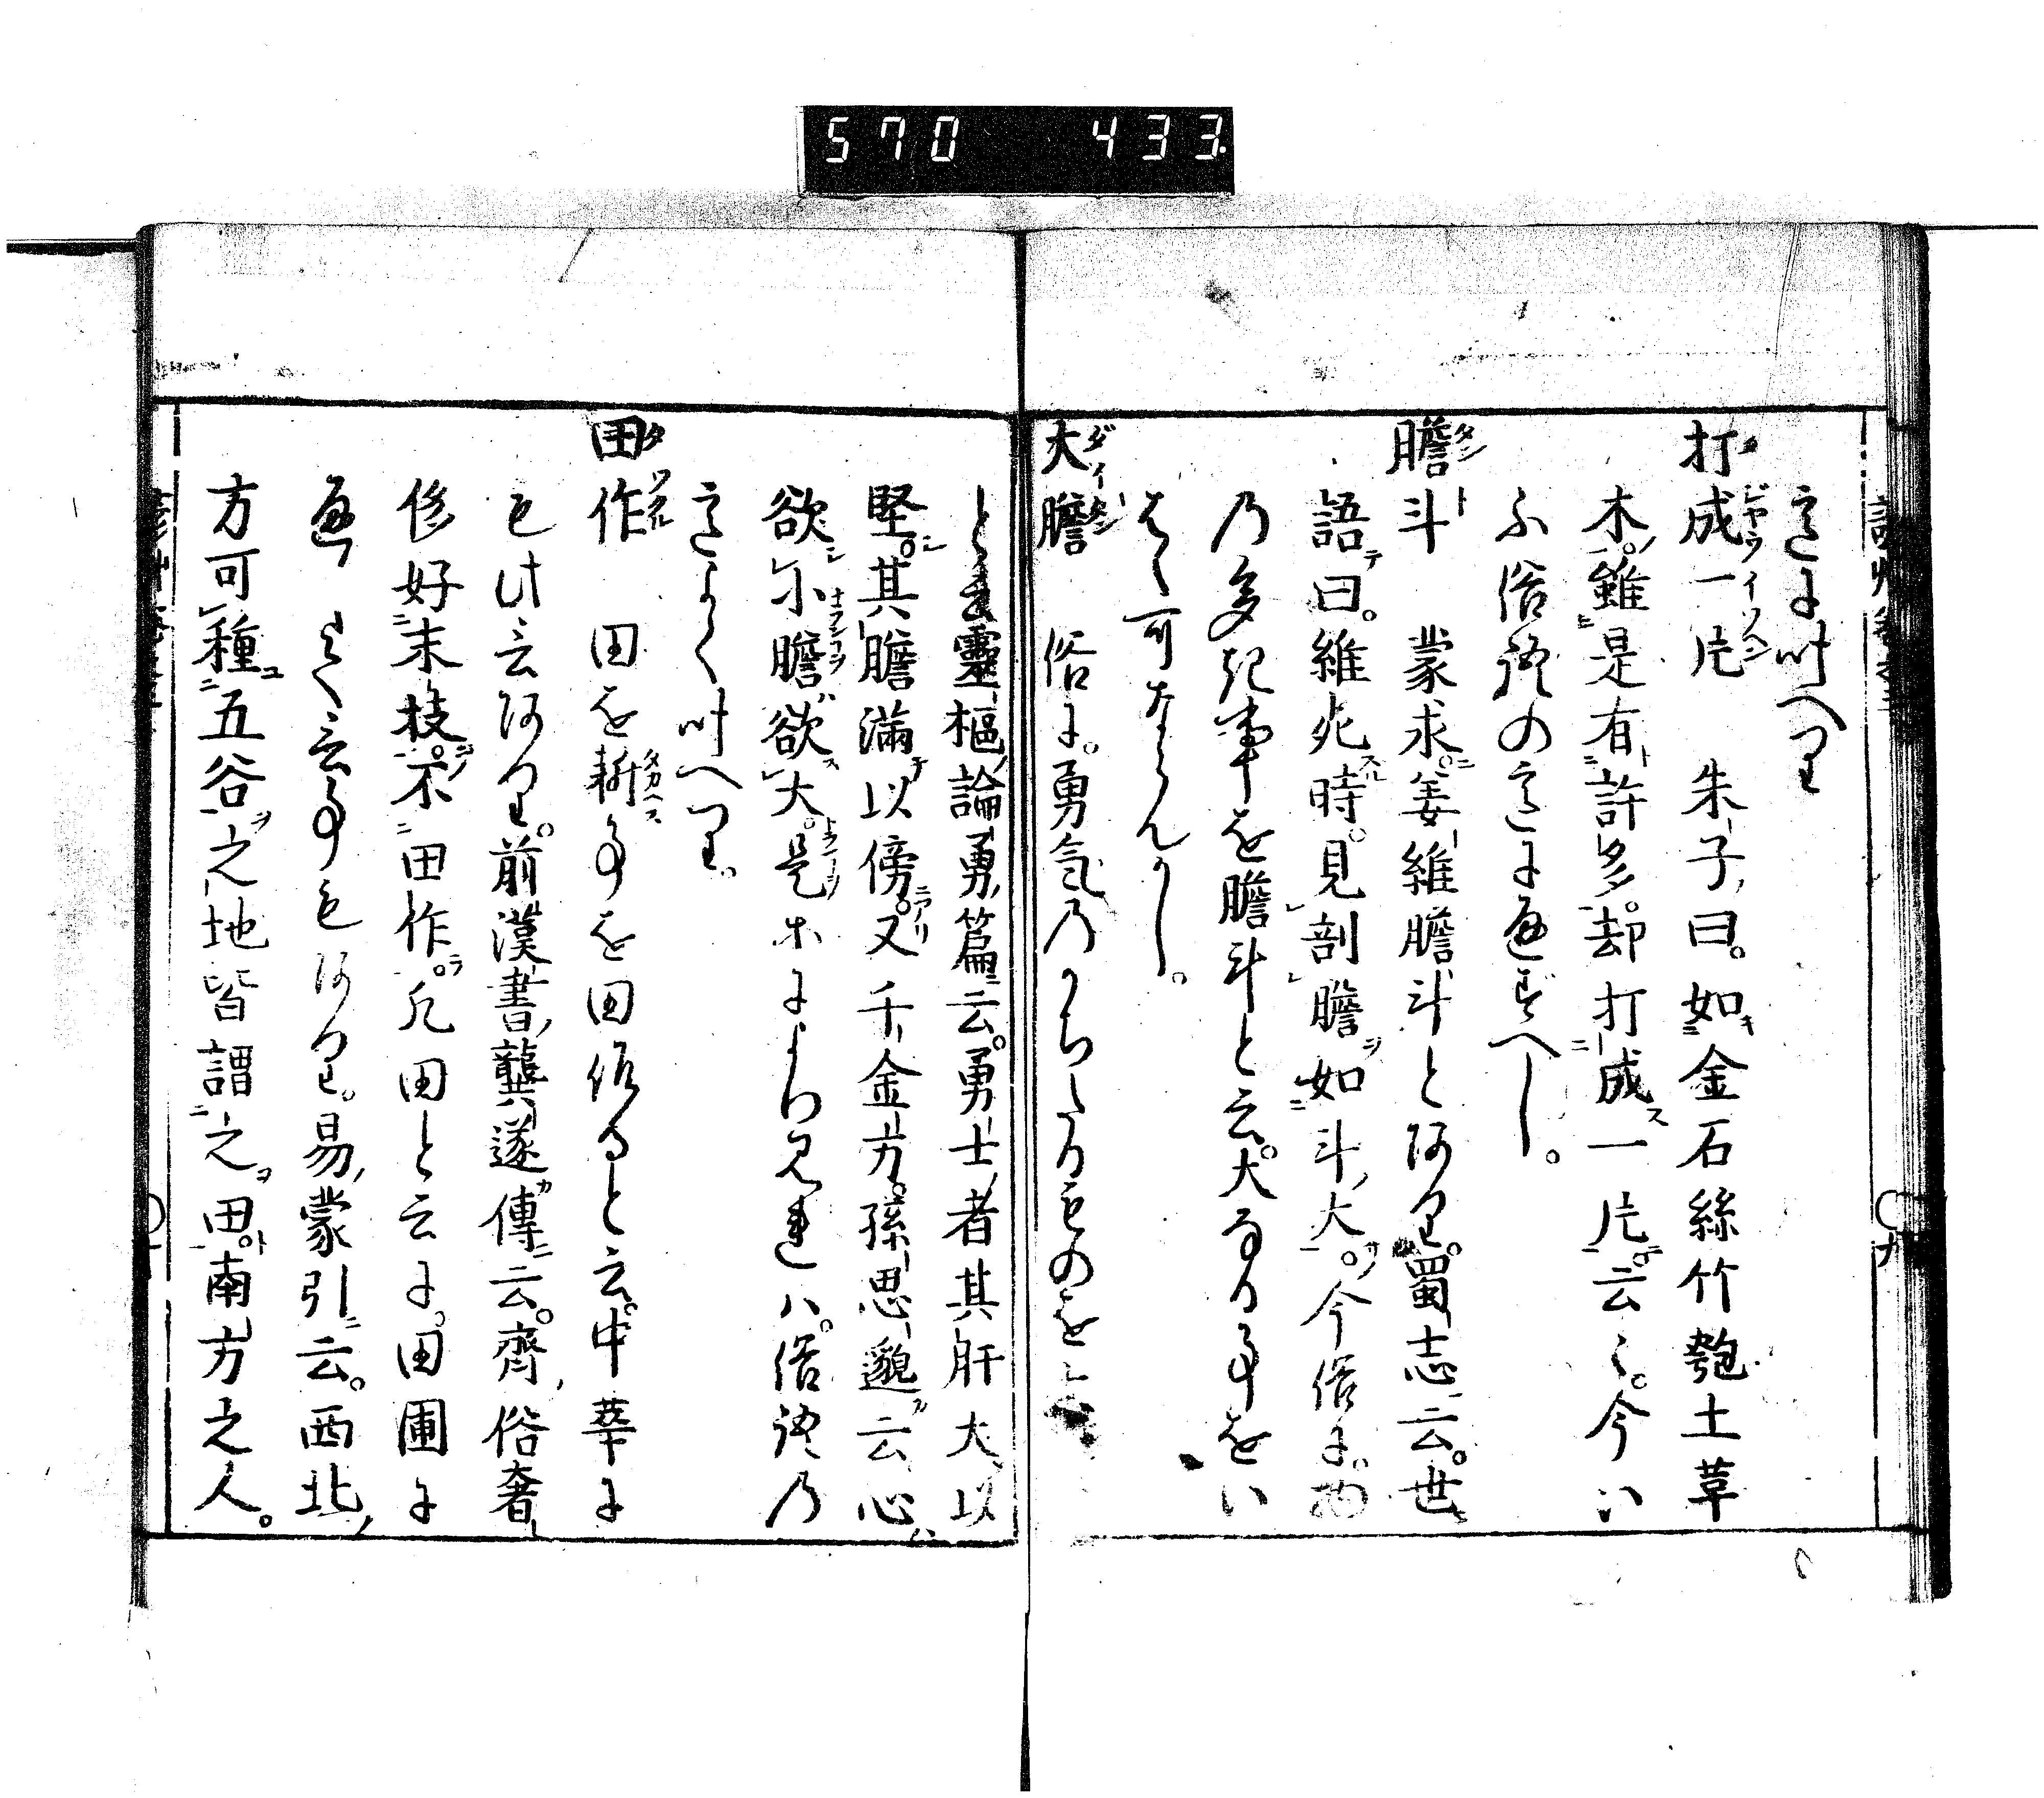 570 433
意に叶へり
打成一片 朱子曰。如金石絲竹匏土草
木。雖是有許多。却打成一片。云々。今い
ふ俗語の意に通ずへし。
膽斗 蒙求。姜維膽斗と阿り。蜀志云。世
語曰。維死時。見剖膽如斗大。今俗に。物
乃多き事を膽斗と云。大なる事をい
はゝ可ならんかし。
大膽 俗に。勇気乃かちたるものを
と云靈樞論勇篇云。勇士者其肝大以
堅。其膽滿以傍。又千金方。孫思邈云心
欲小膽欲大。是ホによりみ連ハ。俗語乃
意よく叶へり。
田作 田を耕事を田作ると云。中華に
も此言阿り。前漢書龔遂傳云。齊俗奢
侈好末技。不田作。凡田と云に。田圃に
通して云事も阿り。易蒙引云。西北
方可種五谷之地皆謂之田。南方之人。